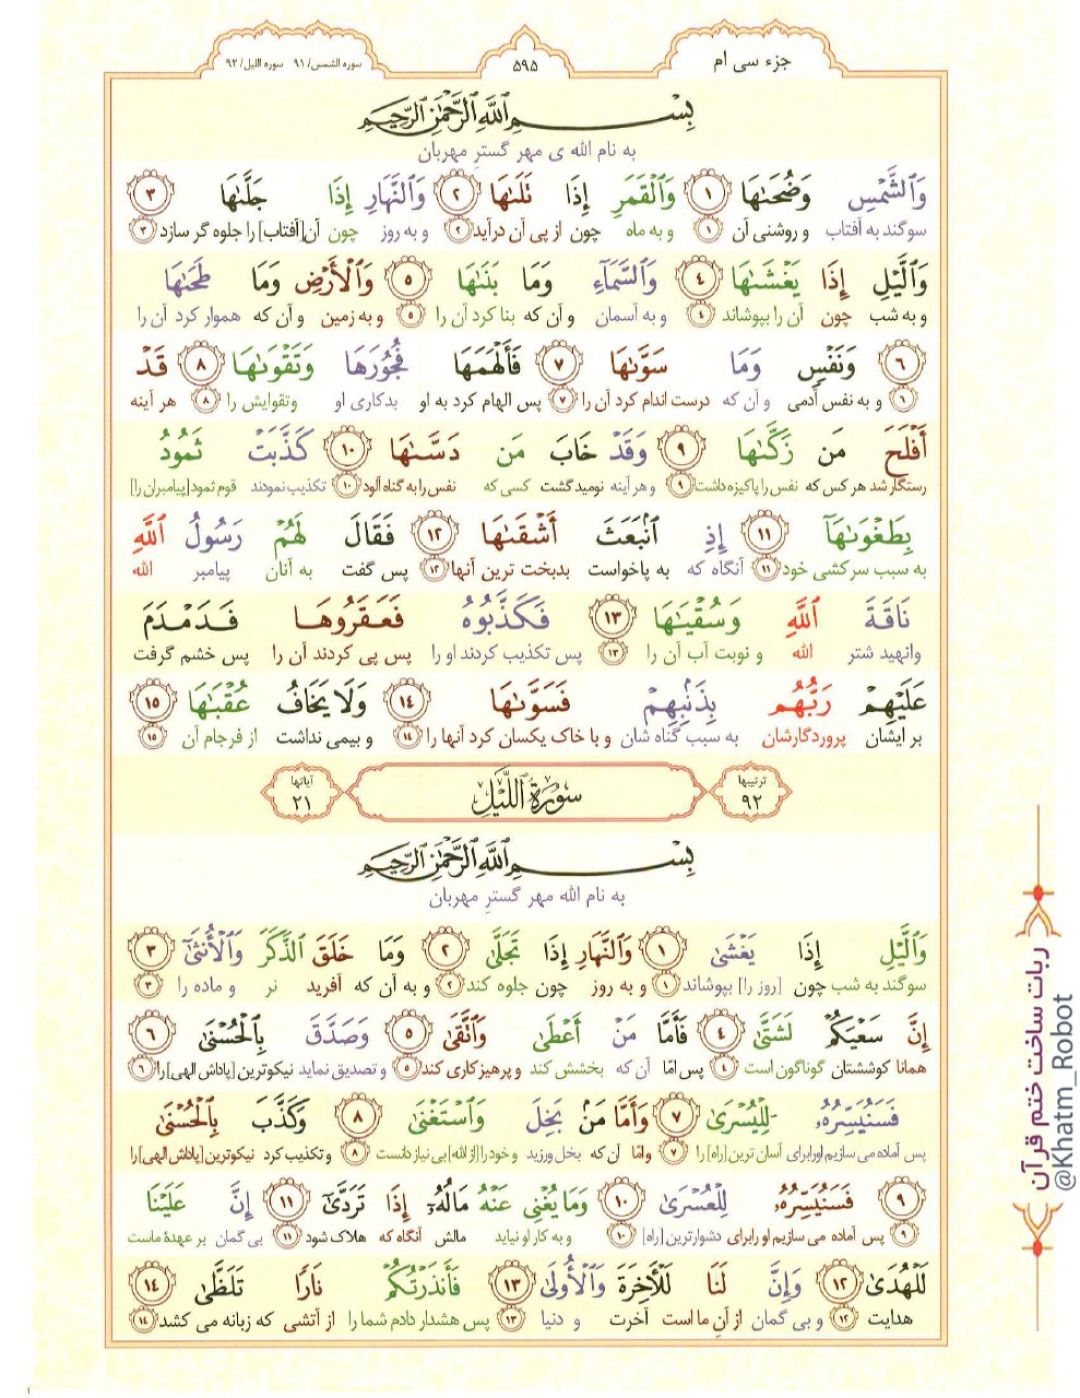 جزء سی ام
۵۹۵
سوره الشمس/ ۹۱ سوره اللیل/ ۹۲
بِسْمِ ٱللَّهِ ٱلرَّحْمَٰنِ ٱلرَّحِيمِ
به نام الله ی مهر گسترِ مهربان
وَٱلشَّمْسِ وَضُحَىٰهَا ۱ وَٱلْقَمَرِ إِذَا تَلَىٰهَا ۲ وَٱلنَّهَارِ إِذَا جَلَّىٰهَا ۳
سوگند به آفتاب و روشنی آن ۱ و به ماه چون از پی آن درآید ۲ و به روز چون آن[آفتاب] را جلوه گر سازد ۳
وَٱلَّيْلِ إِذَا يَغْشَىٰهَا ۴ وَٱلسَّمَآءِ وَمَا بَنَىٰهَا ۵ وَٱلْأَرْضِ وَمَا طَحَىٰهَا
و به شب چون آن را بپوشاند ۴ و به آسمان و آن که بنا کرد آن را ۵ و به زمین و آن که هموار کرد آن را
۶ وَنَفْسٍ وَمَا سَوَّىٰهَا ۷ فَأَلْهَمَهَا فُجُورَهَا وَتَقْوَىٰهَا ۸ قَدْ
۶ و به نفس آدمی و آن که درست اندام کرد آن را ۷ پس الهام کرد به او بدکاری او وتقوایش را ۸ هر آینه
أَفْلَحَ مَن زَكَّىٰهَا ۹ وَقَدْ خَابَ مَن دَسَّىٰهَا ۱۰ كَذَّبَتْ ثَمُودُ
رستگار شد هر کس که نفس را پاکیزه داشت ۹ و هر آینه نومید گشت کسی که نفس را به گناه آلود ۱۰ تکذیب نمودند قوم ثمود[پیامبران را]
بِطَغْوَىٰهَآ ۱۱ إِذِ ٱنۢبَعَثَ أَشْقَىٰهَا ۱۲ فَقَالَ لَهُمْ رَسُولُ ٱللَّهِ
به سبب سرکشی خود ۱۱ آنگاه که به پاخواست بدبخت ترین آنها ۱۲ پس گفت به آنان پیامبر الله
نَاقَةَ ٱللَّهِ وَسُقْيَٰهَا ۱۳ فَكَذَّبُوهُ فَعَقَرُوهَا فَدَمْدَمَ
وانهید شتر الله و نوبت آب آن را ۱۳ پس تکذیب کردند او را پس پی کردند آن را پس خشم گرفت
عَلَيْهِمْ رَبُّهُم بِذَنۢبِهِمْ فَسَوَّىٰهَا ۱۴ وَلَا يَخَافُ عُقْبَٰهَا ۱۵
بر ایشان پروردگارشان به سبب گناه شان و با خاک یکسان کرد آنها را ۱۴ و بیمی نداشت از فرجام آن ۱۵
ترتیبها ۹۲ سُورَةُ ٱللَّيْلِ آیاتها ۲۱
بِسْمِ ٱللَّهِ ٱلرَّحْمَٰنِ ٱلرَّحِيمِ
به نام الله مهر گسترِ مهربان
وَٱلَّيْلِ إِذَا يَغْشَىٰ ۱ وَٱلنَّهَارِ إِذَا تَجَلَّىٰ ۲ وَمَا خَلَقَ ٱلذَّكَرَ وَٱلْأُنثَىٰٓ ۳
سوگند به شب چون [روز را] بپوشاند ۱ و به روز چون جلوه کند ۲ و به آن که آفرید نر و ماده را ۳
إِنَّ سَعْيَكُمْ لَشَتَّىٰ ۴ فَأَمَّا مَنْ أَعْطَىٰ وَٱتَّقَىٰ ۵ وَصَدَّقَ بِٱلْحُسْنَىٰ ۶
همانا کوششتان گوناگون است ۴ پس امّا آن که بخشش کند و پرهیزکاری کند ۵ و تصدیق نماید نیکوترین [پاداش الهی] را ۶
فَسَنُيَسِّرُهُۥ لِلْيُسْرَىٰ ۷ وَأَمَّا مَنۢ بَخِلَ وَٱسْتَغْنَىٰ ۸ وَكَذَّبَ بِٱلْحُسْنَىٰ
پس آماده می سازیم اورابرای آسان ترین [راه] را ۷ وامّا آن که بخل ورزید و خود را[از الله] بی نیاز دانست ۸ و تکذیب کرد نیکوترین [پاداش الهی] را
۹ فَسَنُيَسِّرُهُۥ لِلْعُسْرَىٰ ۱۰ وَمَا يُغْنِى عَنْهُ مَالُهُۥٓ إِذَا تَرَدَّىٰٓ ۱۱ إِنَّ عَلَيْنَا
۹ پس آماده می سازیم او رابرای دشوارترین [راه] ۱۰ و به کار او نیاید مالش آنگاه که هلاک شود ۱۱ بی گمان بر عهدهٔ ماست
لَلْهُدَىٰ ۱۲ وَإِنَّ لَنَا لَلْـَٔاخِرَةَ وَٱلْأُولَىٰ ۱۳ فَأَنذَرْتُكُمْ نَارًا تَلَظَّىٰ ۱۴
هدایت ۱۲ و بی گمان از آنِ ما است آخرت و دنیا ۱۳ پس هشدار دادم شما را از آتشی که زبانه می کشد ۱۴
ربات ساخت ختم قرآن
@Khatm_Robot